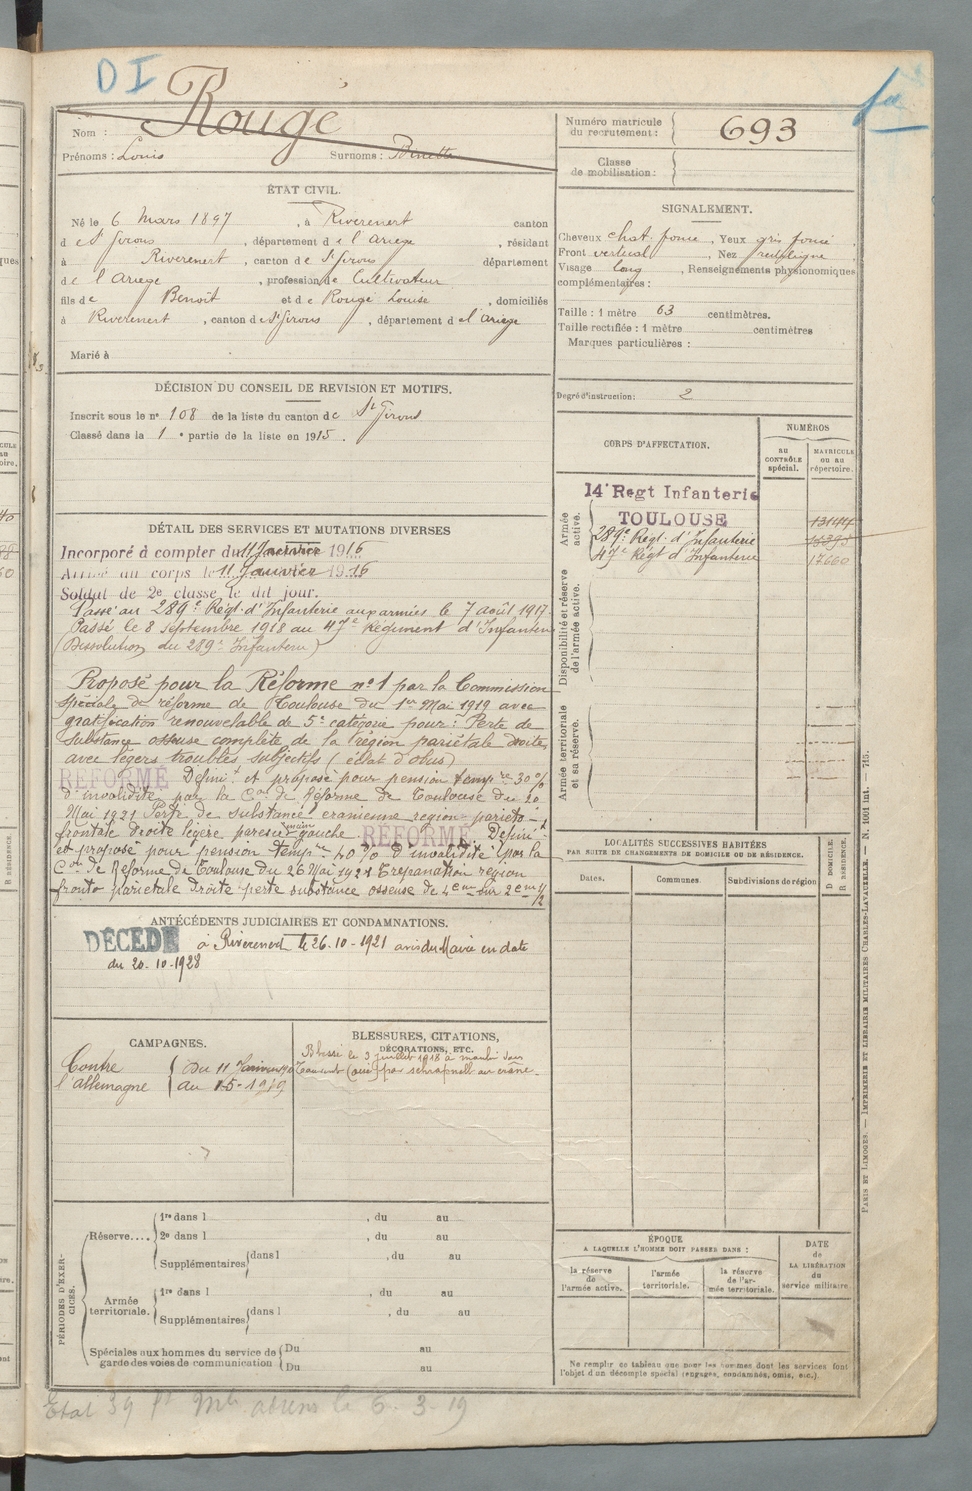 D I
Rougé
Nom :
Prénoms : Louis Surnoms : Benette
Numéro matricule
du recrutement : 693
Classe
de mobilisation :
ÉTAT CIVIL.
Né le 6 Mars 1897, à Riverenert canton
d e St Girons, département d e l'Ariège, résidant
à Riverenert, canton d e St Girons département
d e l'Ariège, profession de Cultivateur
fils d e Benoît et d e Rougé Louise, domiciliés
à Riverenert, canton d e St Girons, département d e l'Ariège
Marié à
SIGNALEMENT.
Cheveux chat. foncé, Yeux gris foncé,
Front vertical, Nez rectiligne
Visage long, Renseignements physionomiques
complémentaires :
Taille : 1 mètre 63 centimètres.
Taille rectifiée : 1 mètre centimètres
Marques particulières :
Degré d'instruction : 2
DÉCISION DU CONSEIL DE REVISION ET MOTIFS.
Inscrit sous le n° 108 de la liste du canton de St Girons
Classé dans la 1e partie de la liste en 1915.
CORPS D'AFFECTATION.
NUMÉROS
AU CONTRÔLE spécial.
MATRICULE ou au répertoire.
Armée active.
14e Regt Infanterie
TOULOUSE 13144
289e Régt. d'Infanterie
47e Régt d'Infanterie 17660
Disponibilité et réserve de l'armée active.
Armée territoriale et sa réserve.
DÉTAIL DES SERVICES ET MUTATIONS DIVERSES
Incorporé à compter du 11 Janvier 1916
Arrivé au corps le 11 Janvier 1916
Soldat de 2e classe le dit jour.
Passé au 289e Régt. d'Infanterie aux armées le 7 août 1917.
Passé le 8 septembre 1918 au 47e Régiment d'Infanterie
(Dissolution du 289e Infanterie)
Proposé pour la Réforme n° 1 par la Commission
spéciale de réforme de Toulouse du 1er Mai 1919 avec
gratification renouvelable de 5e catégorie pour : Perte de
substance osseuse complète de la région pariétale droite,
avec légers troubles subjectifs (éclat d'obus)
RÉFORMÉ Définit et proposé pour pension tempre 30%
d'invalidité par la Con de Réforme de Toulouse du 20
Mai 1921 Perte de substance cranienne region parieto-
frontale droite légère paresie main gauche. RÉFORMÉ Définit
et proposé pour pension tempre 40% d'invalidité par la
Con de Réforme de Toulouse du 26 Mai 1921 Trepanation région
fronto parietale droite perte substance osseuse de 4cm sur 2cm 1/2
ANTÉCÉDENTS JUDICIAIRES ET CONDAMNATIONS.
DÉCÉDÉ à Riverenert le 26.10-1921 avis du Maire en date
du 20.10.1928
LOCALITÉS SUCCESSIVES HABITÉES
PAR SUITE DE CHANGEMENTS DE DOMICILE OU DE RÉSIDENCE.
Dates. Communes Subdivisions de région D DOMICILE. R RÉSIDENCE.
CAMPAGNES.
Contre l'allemagne { Du 11 Janvier
au 15-1919
BLESSURES, CITATIONS,
DÉCORATIONS, ETC.
Blessé le 3 juillet 1918 à moulin sous
Touvent (oise) par schrapnell au crâne.
PÉRIODES D'EXERCICES.
Réserve.... 1re dans l , du au
2e dans l , du au
Supplémentaires dans l , du au
Armée territoriale. 1re dans l , du au
Supplémentaires dans l , du au
Spéciales aux hommes du service de
garde des voies de communication
Du au
Du au
ÉPOQUE
A LAQUELLE L'HOMME DOIT PASSER DANS :
la réserve de l'armée active.
l'armée territoriale.
la réserve de l'armée territoriale.
DATE de LA LIBÉRATION du service militaire.
Ne remplir ce tableau que pour les hommes dont les services font
l'objet d'un décompte spécial (engagés, condamnés, omis, etc.).
PARIS ET LIMOGES. — IMPRIMERIE ET LIBRAIRIE MILITAIRES CHARLES-LAVAUZELLE. — N. 1001 int. — 715.
Etat 39 la 6-3-19